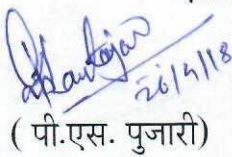 26/4/18
( पी.एस. पुजारी)